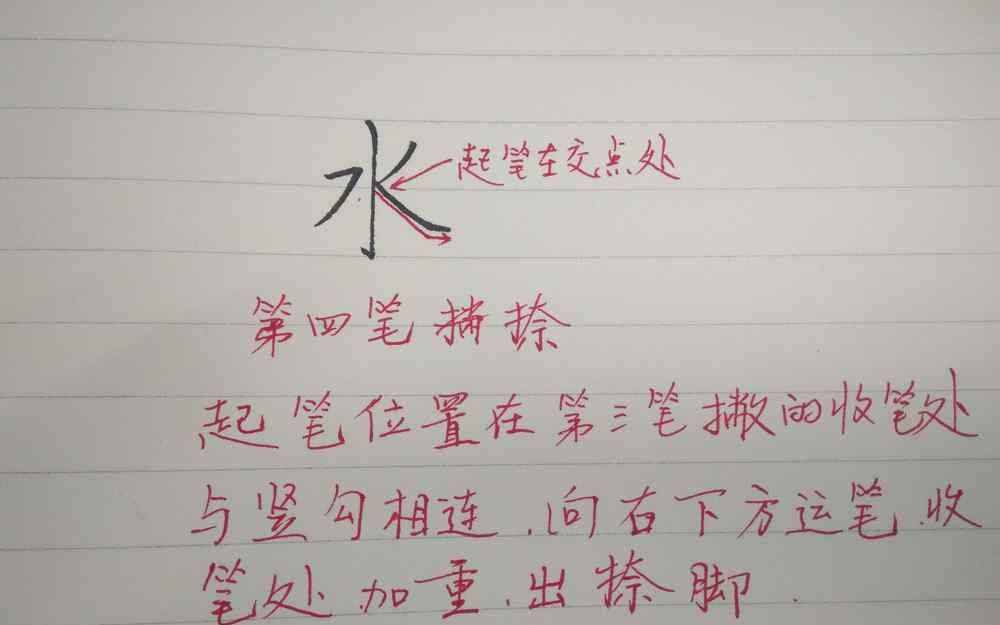 水
起笔在交点处
第四笔捺捺
起笔位置在第三笔撇的收笔处
与竖勾相连.向右下方运笔.收
笔处加重.出捺脚.